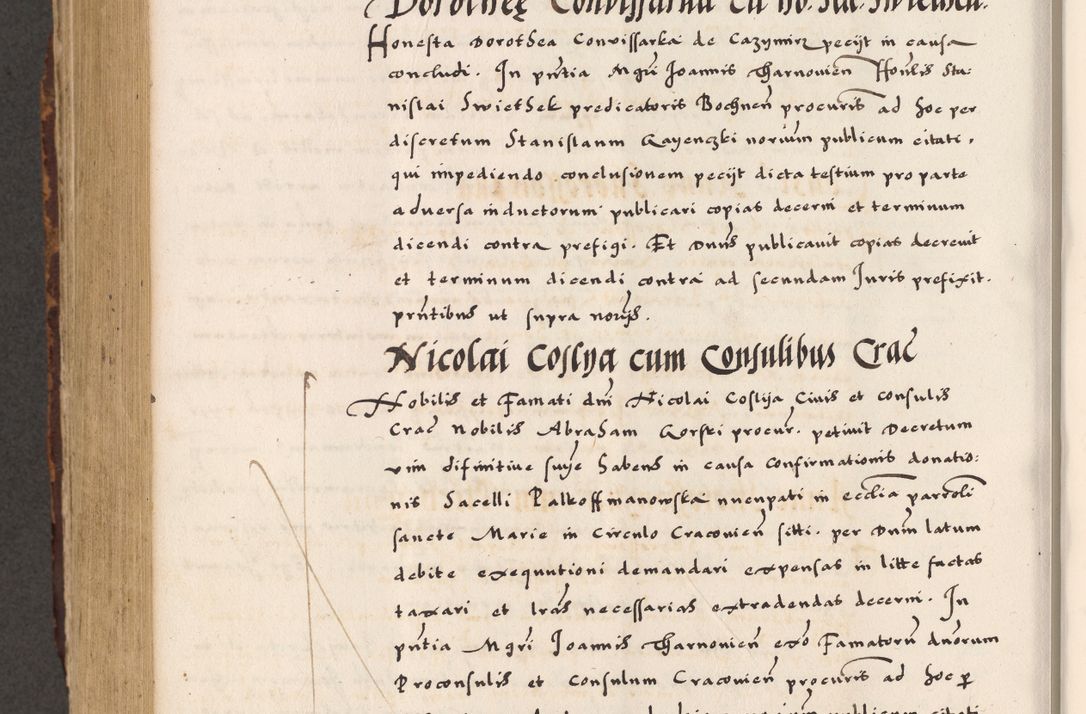 Dorotheę Convissarka cū ho. Sta. Swiethek.
Honesta Dorothea Convissarka de Cazymirz pecijt in causa
concludi. In pn̄tia Mgr̄i Joannis Tharnovien̄ Hon̄lis Sta:
nislai Swiethek predicatoris Bochnen̄ procur̄is ad hoc per
discretum Stanislaum Gayenczki nor̄ium publicum citati,
qui impediendo conclusionem pecijt dicta testium pro parte
adversa inductorum publicari copias decerni et terminum
dicendi contra prefigi. Et Dn̄us publicavit copias decrevit
et terminum dicendi contra ad secundam Juris prefixit.
prn̄tibus ut supra nor̄ijs.
Nicolai Coslya cum Consulibus Crac̄
Nobilis et Famati dn̄i Nicolai Coslya Civis et consulis
Crac̄ Nobilis Abraham Gorski procur. petivit Decretum
vim difinitive suȩ habens in causa confirmationis donatio:
nis Sacelli Palkoffmanowska nuncupati in eccl̄ia parrol̄i
sancte Marie in Circulo Cracovien̄ sitti. per Dnn̄m latum
debite exequutioni demandari expensas in litte factas
taxari et lr̄as necessarias extradendas decerni. In
pn̄tia Mgr̄i Joannis Tharnovien̄ exo Famator̄ dn̄orum
Proconsulis et Consulum Cracovien̄ procur̄is ad hoc ꝑ
publicum citati